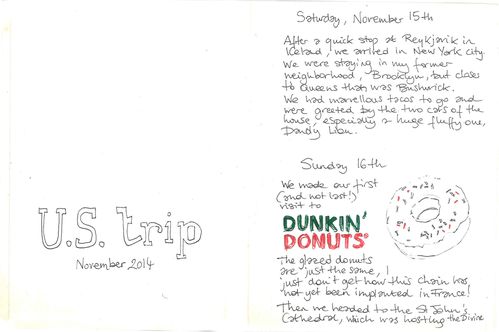 U.S. trip
November 2014
Saturday, November 15th
After a quick stop at Reykjavik in
Iceland, we arrived in New York city.
We were staying in my former
neighborhood, Brooklyn, but closer
to Queens that was Bushwick.
We had marvellous tacos to go and
were greeted by the two cats of the
house, especially a huge fluffy one,
Dandy Lion.
Sunday 16th
We made our first
(and not last!)
visit to
DUNKIN'
DONUTS
The glazed donuts
are just the same, I
just don't get how this chain has
not yet been implanted in France!
Then we headed to the St John's
Cathedral, which was hosting the Divine